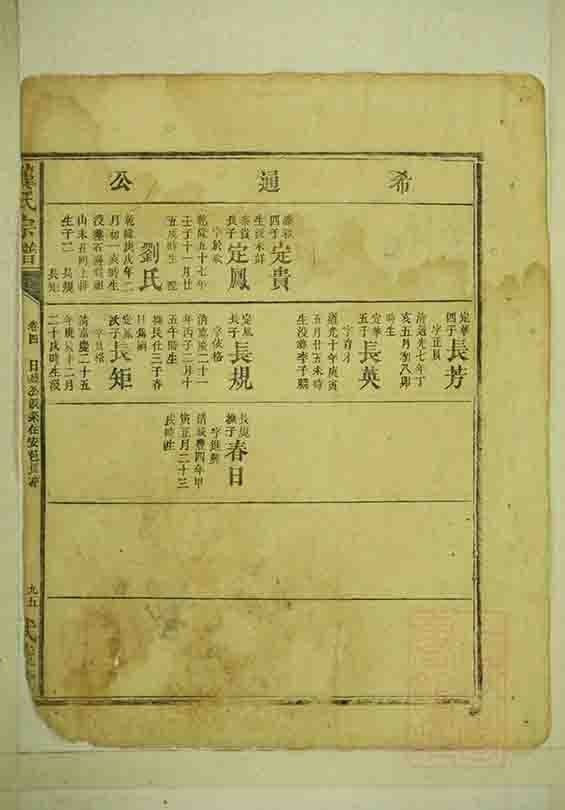 希通公
四子 定貴
生沒未詳
長子 定鳳
乾隆五十七年
壬子十一月廿
五 時生
劉氏
乾隆庚戌年二
月初一亥時生
生子二 長規
長矩
定華
四子 長芳
字正
清道光七年丁
亥五月初八卯
時生
定華
五子 長英
字育才
道光十年庚寅
五月廿五未時
生沒葬李子
定鳳
長子 長規
字依格
清嘉慶二十一
年丙子二月十
五午時生
撫長仕三子春
日為嗣
定鳳
次子 長矩
清嘉慶二十五
年庚辰十二月
二十 時生沒
長規
撫子 春日
字進興
清咸豐四年甲
寅正月二十三
時生
氏宗譜
卷四
九五